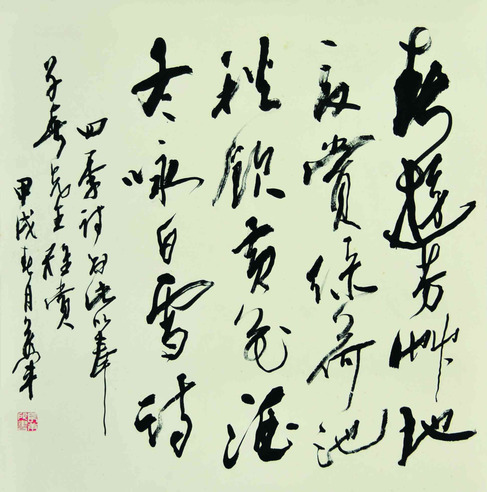 春遊芳艸地
夏賞綠荷池
秋飲黃花酒
冬咏白雪詩
四季詩 以奉
先生雅賞
甲戌春月